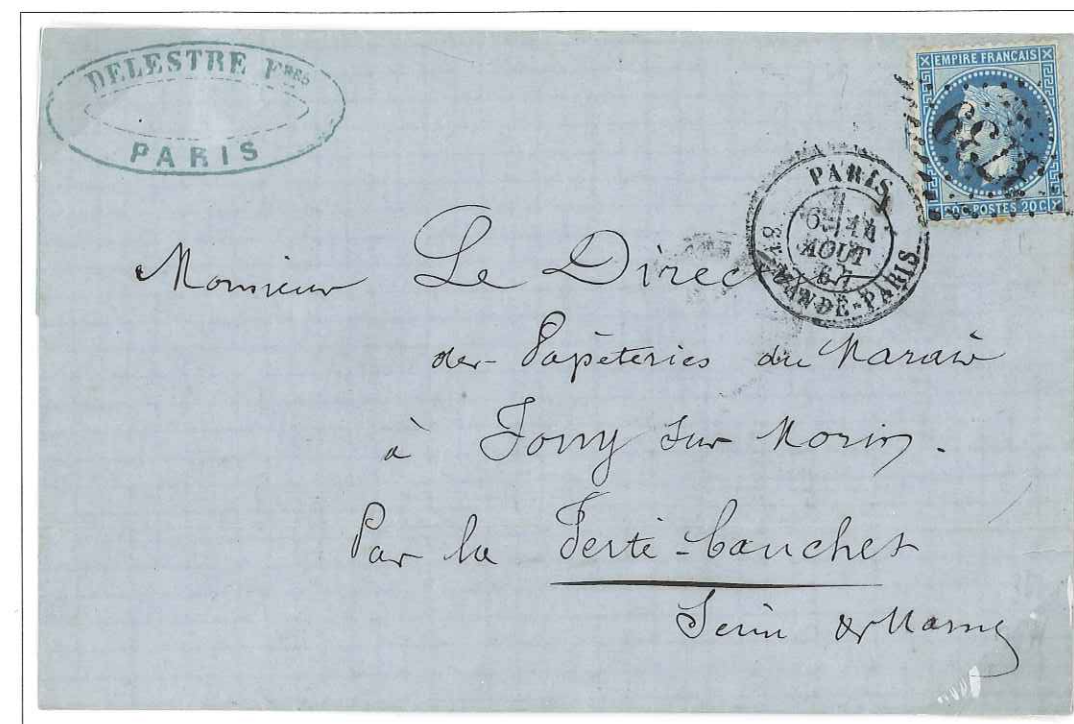 DELESTRE FRES
PARIS
EMPIRE FRANCAIS
20C POSTES 20C
PARIS
6E
AOUT
67
PARIS
Monsieur Le Direc
des Papeteries du Marais
à Jouy sur Morin.
Par la Ferté-Gaucher
Seine & Marne